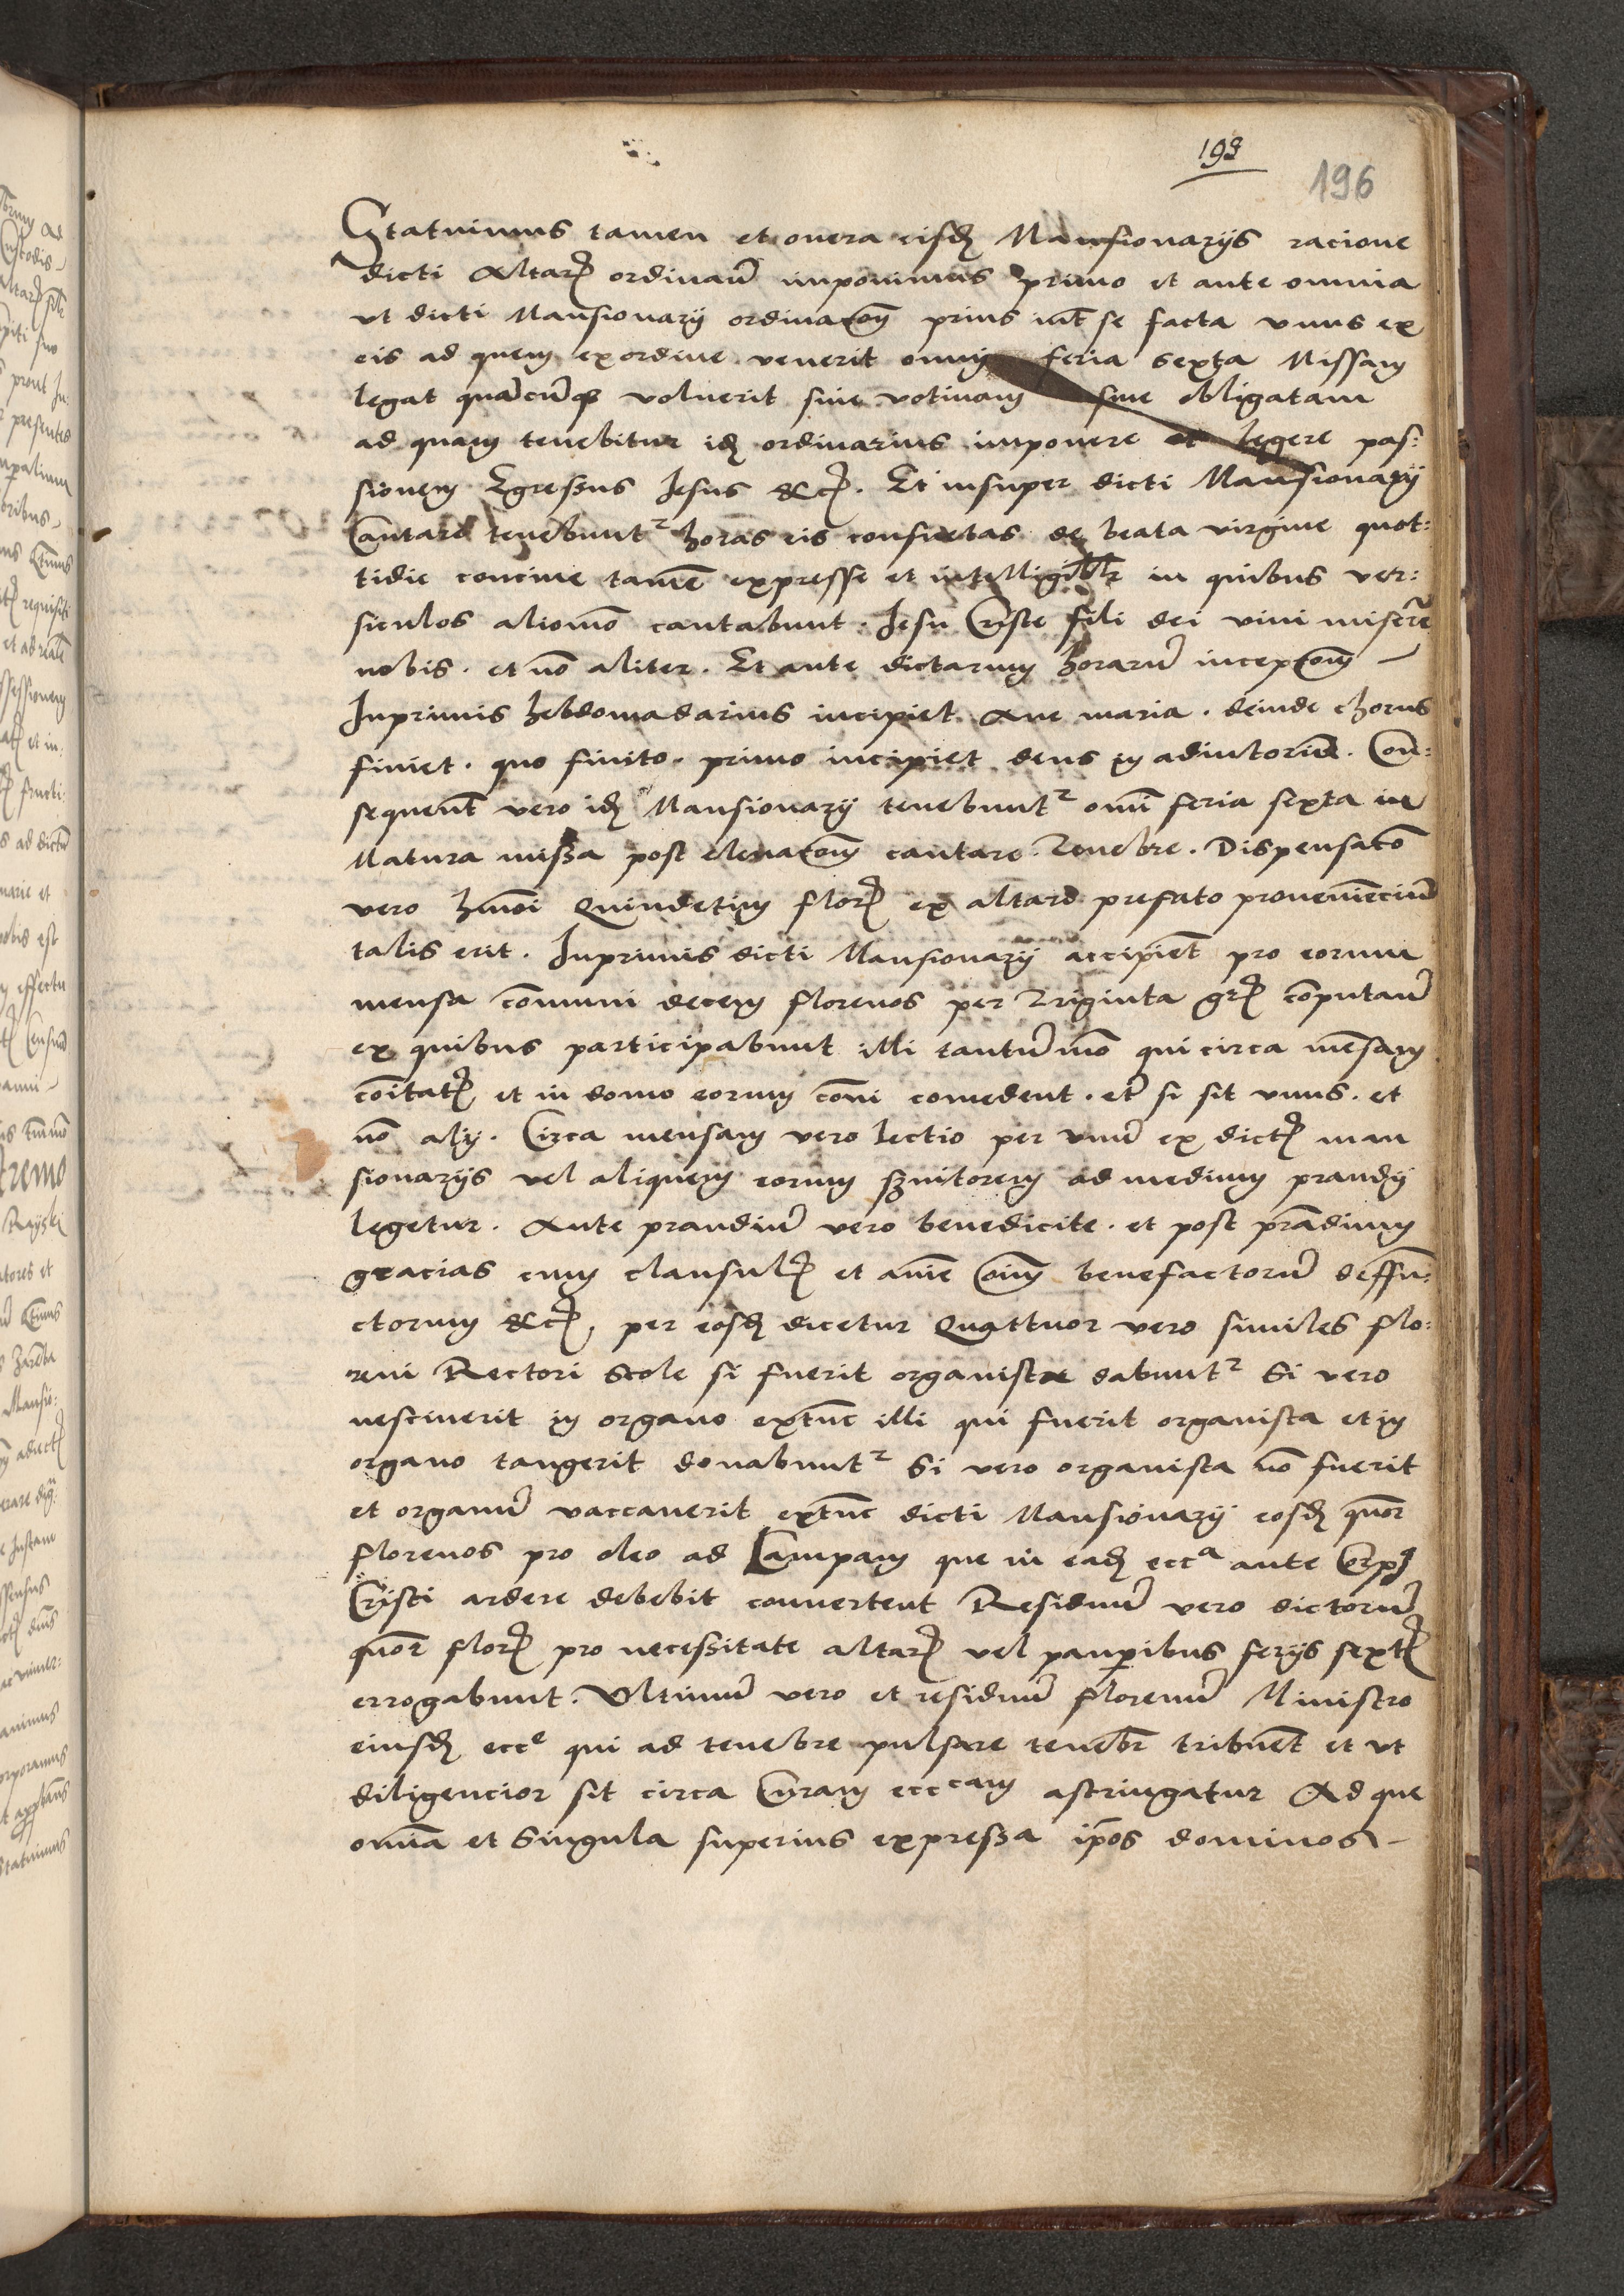 198
196
Statuimus tamen et onera eisdẽ Mansionarijs racione
dicti Altarꝭ ordinanꝰ imponimus primo et ante omnia
ut dicti Mansionarij ordinacõe prius int̃ se facta unus ex
eis ad quem ex ordine venerit omni feria sexta Missam
legat quãcũqꝫ voluerit siue votiuam siue obligatam
ad quam tenebitur idẽ ordinarius imponere et legere pas:
sionem Egressus Jesus &cꝭ. Et insuper dicti Mansionarij
Cantare tenebuntʳ horas eis consuetas de beata virgine quot:
tidie concine tamẽ expresse et intelligibłr in quibus ver:
siculos aliomõ cantabunt. Jesu Criste fili dei viui miserẽ
nobis. et nõ aliter. Et ante dictarum horarũ incepcõem –
Inprimis hebdomadarius incipiet Aue maria. deinde chorus
finiet. quo finito. primo incipiet deus in adiutoriũ. Con:
sequent̃ vero idẽ Mansionarij tenebuntʳ omi feria sexta in
Matura missa post eleuacõem cantare. Tenebre. Dispensacõ
vero hmõi Quindecim florꝭ ex altare prefato proueniẽciũ
talis erit. Inprimis dicti Mansionarij accipient̃ pro eorum
mensa cõmuni decem florenos per Triginta grꝭ cõputanꝰ
ex quibus participabunt illi tantũmõ qui circa mẽsam
cõitatꝭ et in domo eorum cõni comedent. et̃ si sit unus. et
nõ alij. Circa mensam vero lectio per unũ ex dictꝭ man
sionarijs vel aliquem eorum seruitorem ad medium prandij
legetur. Ante prandiũ vero benedicite. et post prãdium
gracias cum clausulꝭ et aĩe oĩm benefactorũ deffun:
ctorum &cꝭ, per eosdẽ dicetur Quattuor vero similes flo:
reni Rectori Scole si fuerit organista dabuntʳ Si vero
nesciuerit in organo extũc illi qui fuerit organista et in
organo tangerit donabuntʳ Si vero organista nõ fuerit
et organũ vaccauerit extũc dicti Mansionarij eosdẽ quor̃
florenos pro oleo ad Lampam que in eadẽ eccᵃ ante Corpꝰ
Cristi ardere debebit conuertent Residuũ vero dictorũ
quor̃ florꝭ pro necessitate altarꝭ vel pauperibus ferijs sextꝭ
errogabunt. Ultimũ vero et residuũ florenũ Ministro
eiusdẽ eccᵉ qui ad tenebre pulsare tenebr̃ tribuent̃ et ut
diligencior sit circa Curam ecccam astringatur Ad que
omĩa et Singula superius expressa ip̃os dominos –